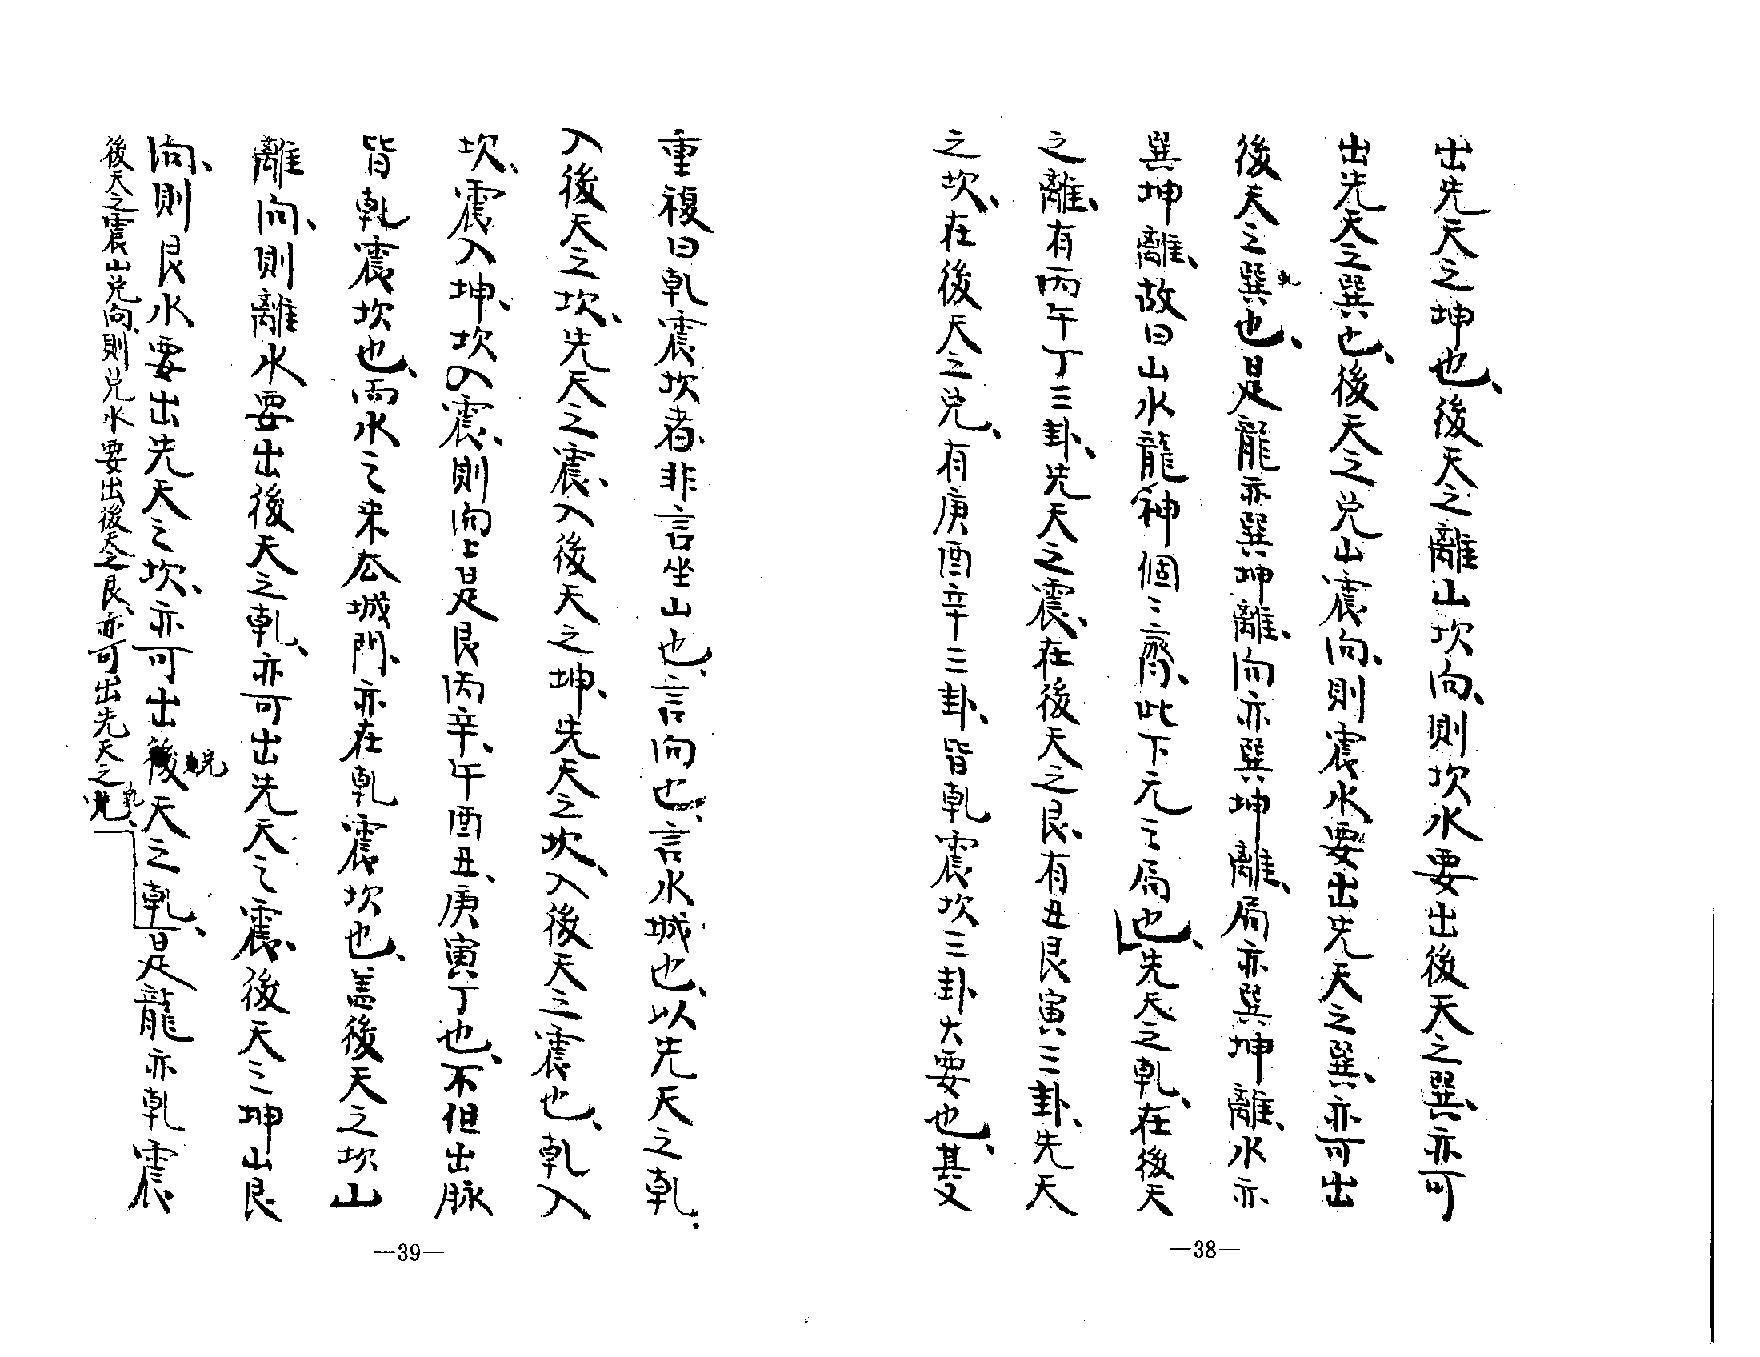 出先天之坤也、後天之離山坎向、則坎水要出後天之巽、亦可
出先天之巽也、後天之兌山震向、則震水要出先天之巽、亦可出
後天之巽也、是龍亦巽坤離、向亦巽坤離、局亦巽坤離、水亦
巽坤離、故曰山水龍神個〻齊、此下元之局也、先天之乹、在後天
之離、有丙午丁三卦、先天之震、在後天之艮、有丑艮寅三卦、先天
之坎、在後天之兌、有庚酉辛三卦、皆乹震坎三卦大要也、其又
—38—
重複曰乹震坎者、非言坐山也、言向也、言水城也、以先天之乹、
入後天之坎、先天之震、入後天之坤、先天之坎、入後天之震也、乹入
坎、震入坤、坎入震、則向上是艮丙辛、午酉丑、庚寅丁也、不但出脉
皆乹震坎也、而水之来去城門、亦在乹震坎也、盖後天之坎山
離向、則離水要出後天之乹、亦可出先天之震、後天之坤山艮
向、則艮水要出先天之坎、亦可出後天之乹、是龍亦乹震
兌
後天之震山兌向、則兌水要出後天之艮、亦可出先天之
—39—